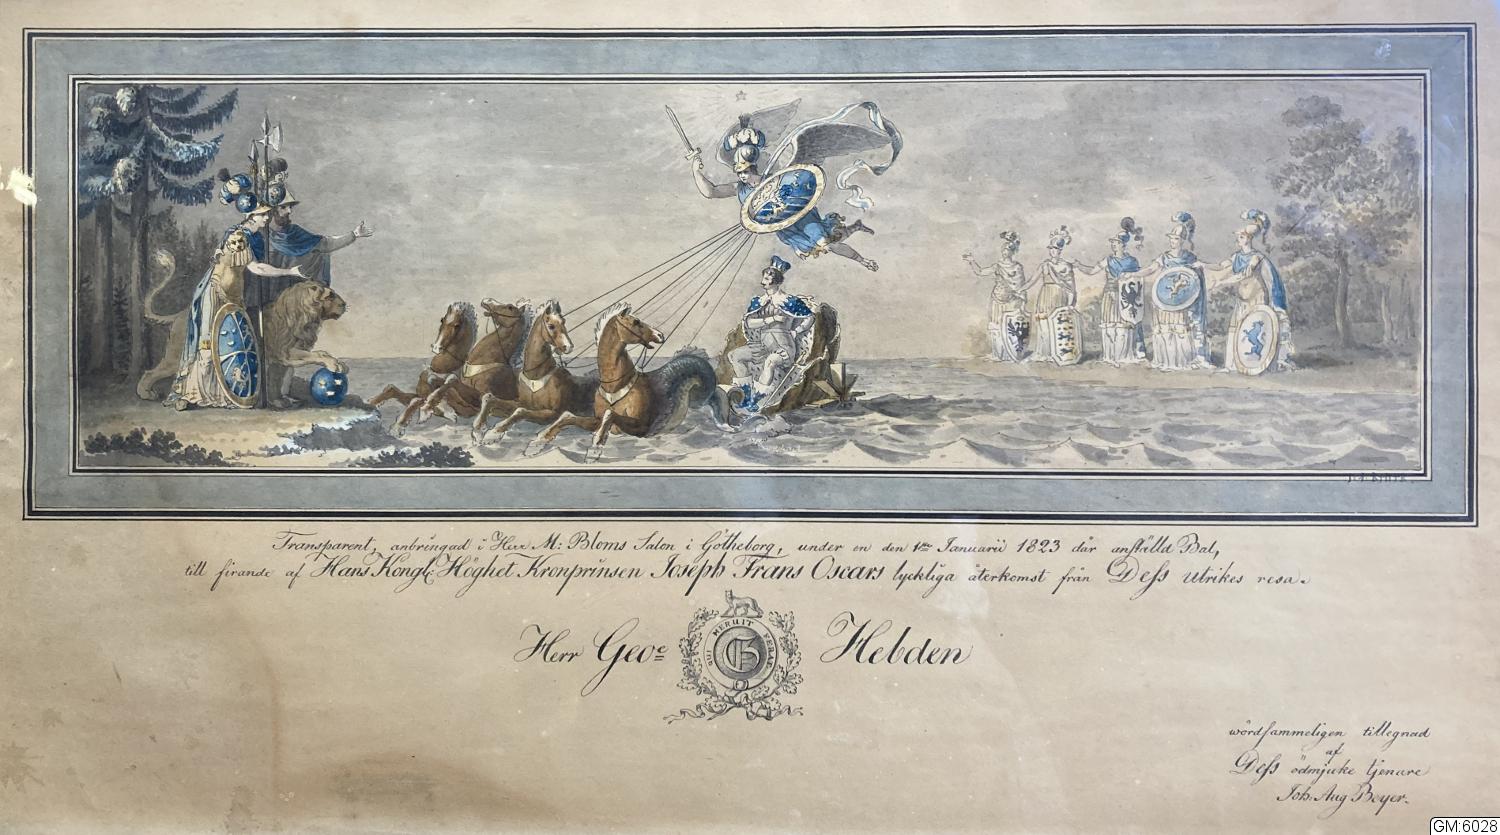 Transparent, anbringad i Herr M: Bloms Salon i Götheborg, under en den 1sta Januarii 1823 där anställd Bal,
till firande af Hans Kongl: Höghet Kronprinsen Joseph Frans Oscars lyckliga återkomst från Dess utrikes resa.
Herr Geo:e Hebden
QUI MERUIT FERAT
G
wördsammeligen tillegnad
af
Dess ödmjuke tjenare
Joh. Aug Beyer.
GM:6028